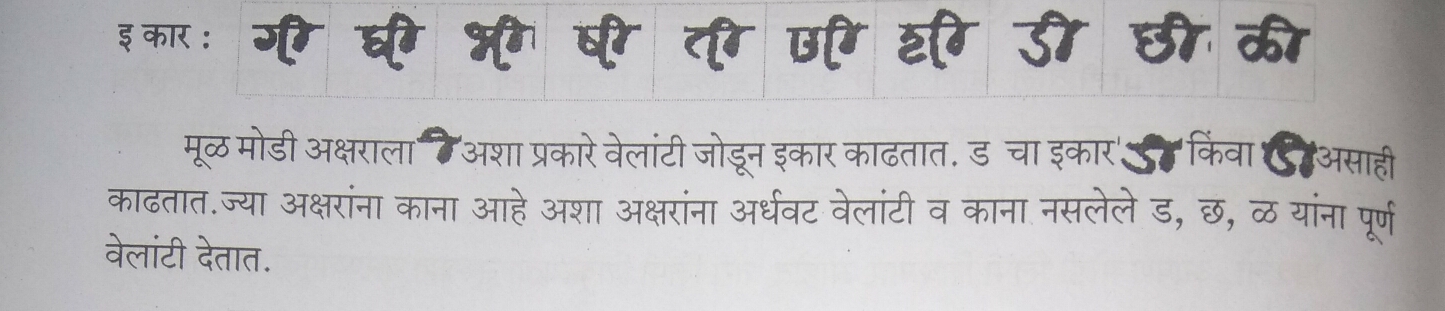 इ कार : गी घी भी षी ती णी ही डी छी ळी
मूळ मोडी अक्षराला ी अशा प्रकारे वेलांटी जोडून इकार काढतात. ड चा इकार डी किंवा डी असाही
काढतात. ज्या अक्षरांना काना आहे अशा अक्षरांना अर्धवट वेलांटी व काना नसलेले ड, छ, ळ यांना पूर्ण
वेलांटी देतात.